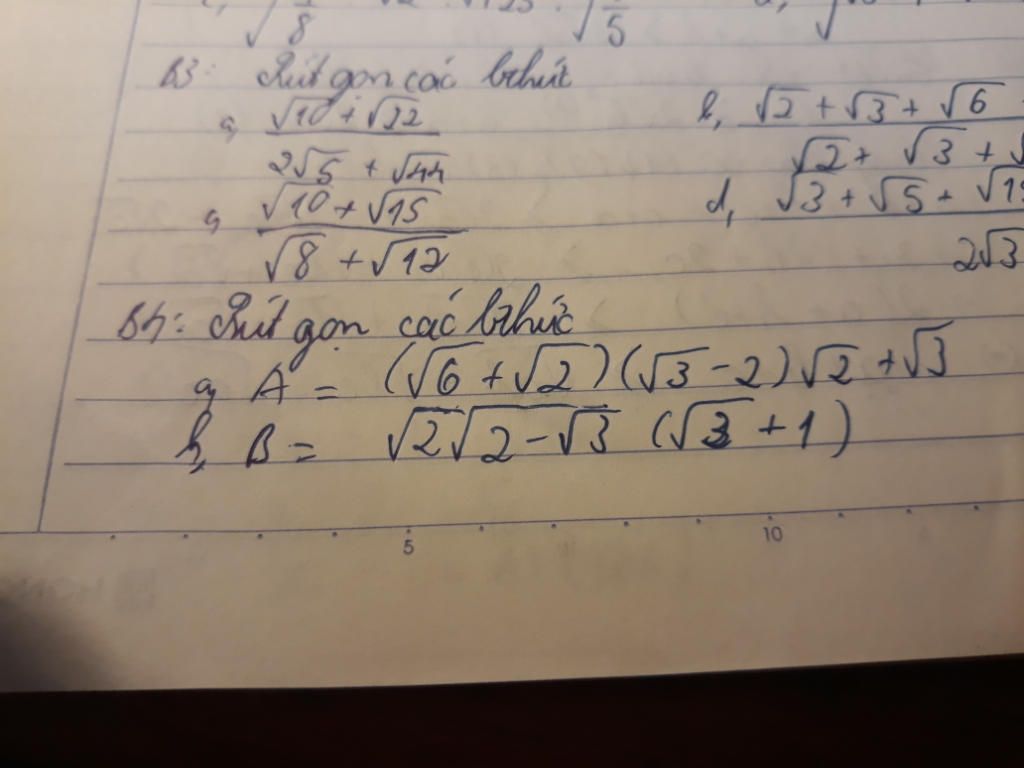 B3: Rút gọn các bthức
a, (√10 + √22)/(2√5 + √44) b, √2 + √3 + √6 / √2 + √3 +
c, (√10 + √15)/(√8 + √12) d, √3 + √5 + √15 / 2√3
B4: Rút gọn các bthức
a, A = (√6 + √2)(√3 - 2)√2 + √3
b, B = √2√2-√3 (√3 + 1)
5 10